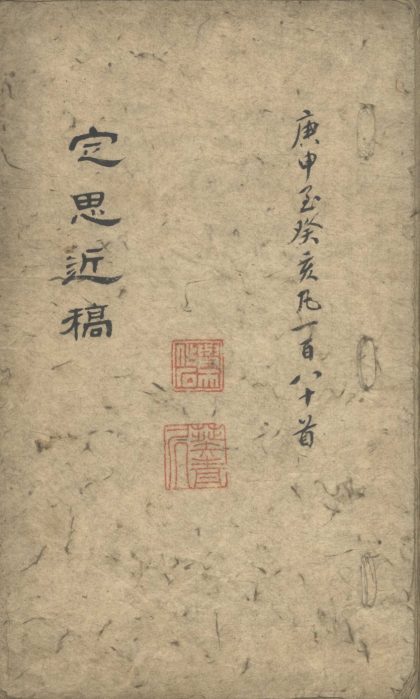 庚申至癸亥凡一百八十首
定思近稿